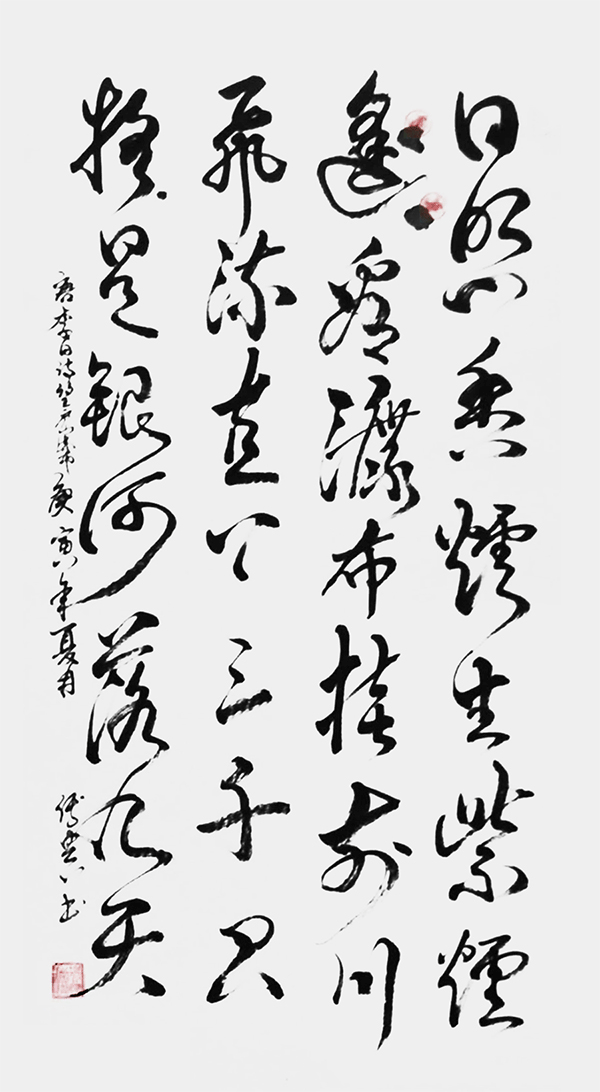 日照香爐生紫煙
遙看瀑布挂前川
飛流直下三千尺
疑是銀河落九天
唐李白詩望庐山瀑布庚寅年夏月
書